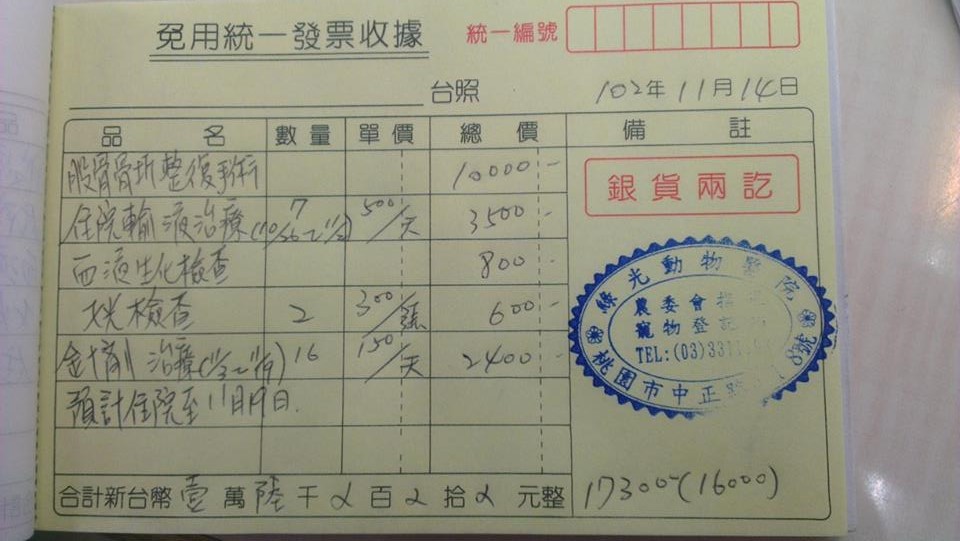 免用統一發票收據 統一編號
台照 102年11月14日
品名 數量 單價 總價 備註
股骨骨折整復手術 10000-
住院輸液治療(10/26~11/2) 7 500/天 3500-
血液生化檢查 800-
X光檢查 2 300/張 600-
治療(11/3~11/19) 16 150/天 2400-
預計住院至11月19日.
合計新台幣壹萬陸千 百 拾 元整
銀貨兩訖
綠光動物醫院
農委會
寵物登記
TEL:(03)331
桃園市中正路 號
17300-(16000)